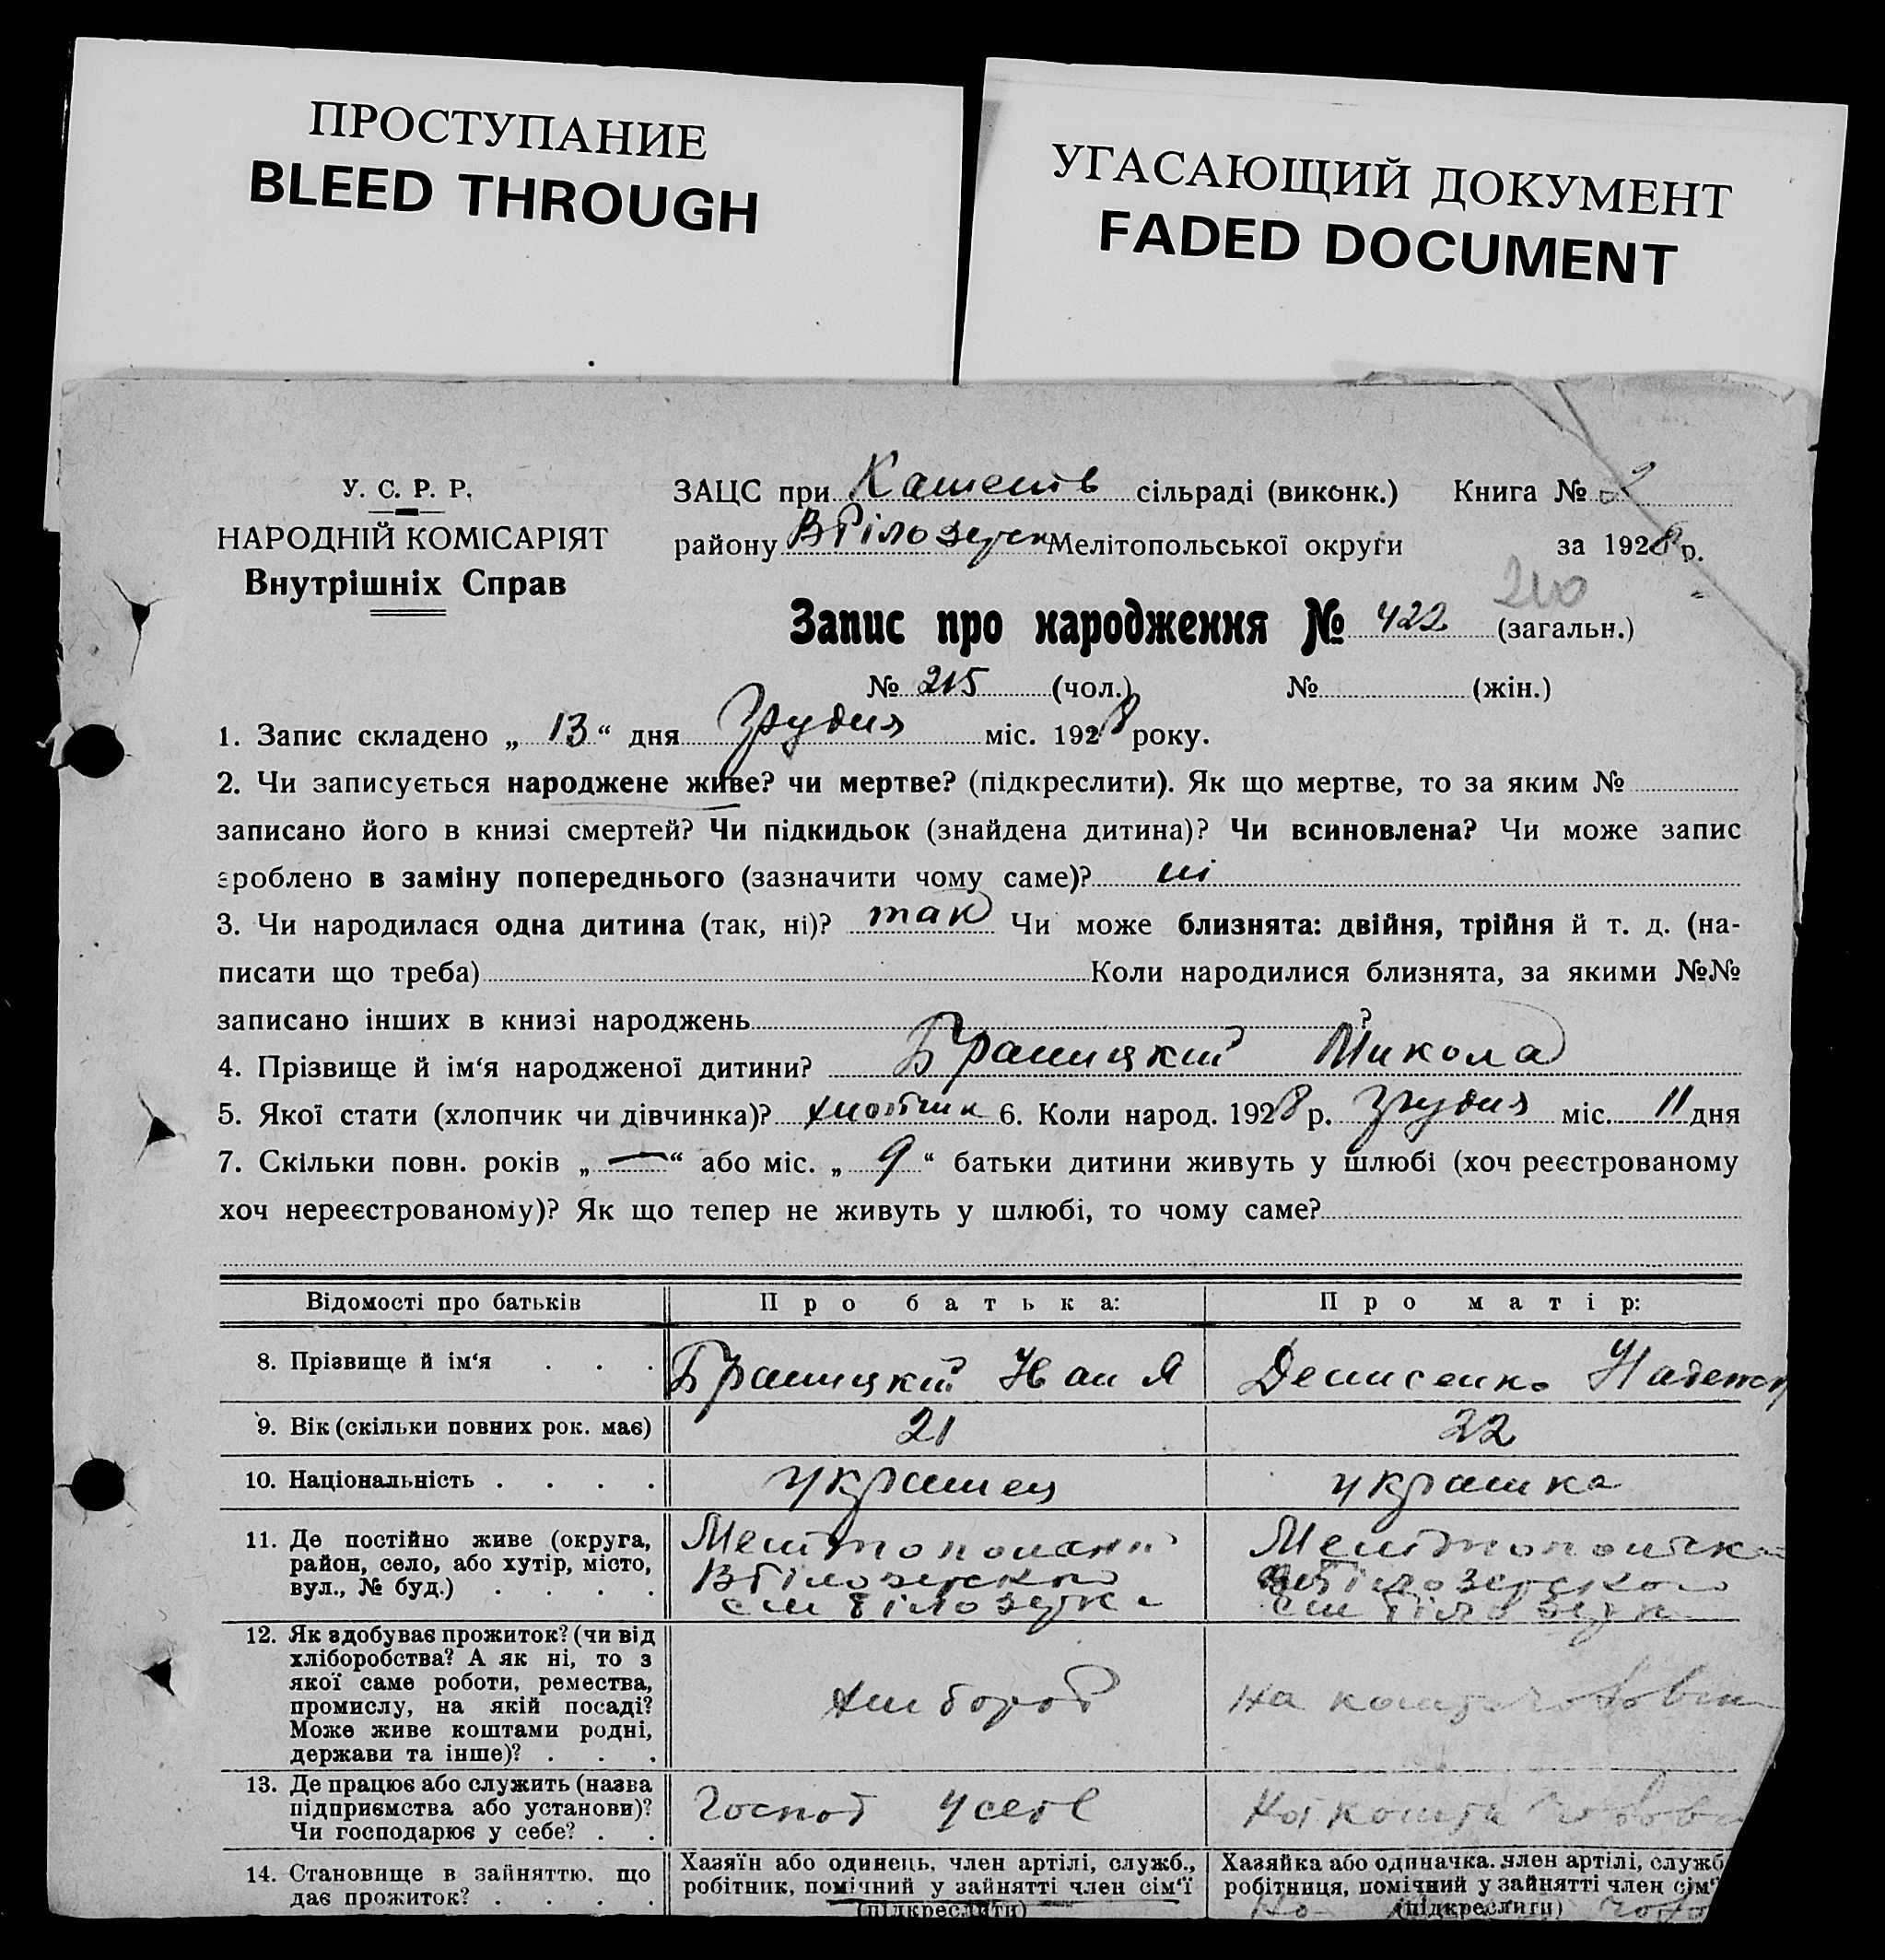 ПРОСТУПАНИЕ
BLEED THROUGH
УГАСАЮЩИЙ ДОКУМЕНТ
FADED DOCUMENT
У. С. Р. Р.
НАРОДНІЙ КОМІСАРІЯТ
Внутрішніх Справ
ЗАЦС при сільраді (виконк.) Книга №
району Мелітопольської округи за 1928 р.
210
Запис про народження № 422 (загальн.)
№ 215 (чол.) № (жін.)
1. Запис складено „ 13 “ дня Грудня міс. 1928 року.
2. Чи записується народжене живе? чи мертве? (підкреслити). Як що мертве, то за яким №
записано його в книзі смертей? Чи підкидьок (знайдена дитина)? Чи всиновлена? Чи може запис
зроблено в заміну попереднього (зазначити чому саме)? ні
3. Чи народилася одна дитина (так, ні)? так Чи може близнята: двійня, трійня й т. д. (на-
писати що треба) Коли народилися близнята, за якими №№
записано інших в книзі народжень ?
4. Прізвище й ім‘я народженої дитини? Браницкий Микола
5. Якої стати (хлопчик чи дівчинка)? хлопчик 6. Коли народ. 1928 р. Грудня міс. 11 дня
7. Скільки повн. років „ — “ або міс. „ 9 “ батьки дитини живуть у шлюбі (хоч реєстрованому
хоч нереєстрованому)? Як що тепер не живуть у шлюбі, то чому саме?
Відомості про батьків Про батька: Про матір:
8. Прізвище й ім‘я Браницкий Иван Я Денисенко
9. Вік (скільки повних рок. має) 21 22
10. Національність українец українка
11. Де постійно живе (округа,
район, село, або хутір, місто,
вул., № буд.)
12. Як здобуває прожиток? (чи від
хліборобства? А як ні, то з
якої саме роботи, ремества,
промислу, на якій посаді?
Може живе коштами родні,
держави та інше)?
хлібороб
13. Де працює або служить (назва
підприємства або установи)?
Чи господарює у себе?
Господ у себе
14. Становище в зайняттю, що
дає прожиток?
Хазяїн або одинець, член артілі, служб.,
робітник, помічний у зайнятті член сім‘ї
(підкреслити)
Хазяйка або одиначка. член артілі, служб
робітниця, помічний у зайнятті член сім‘
(підкреслити)